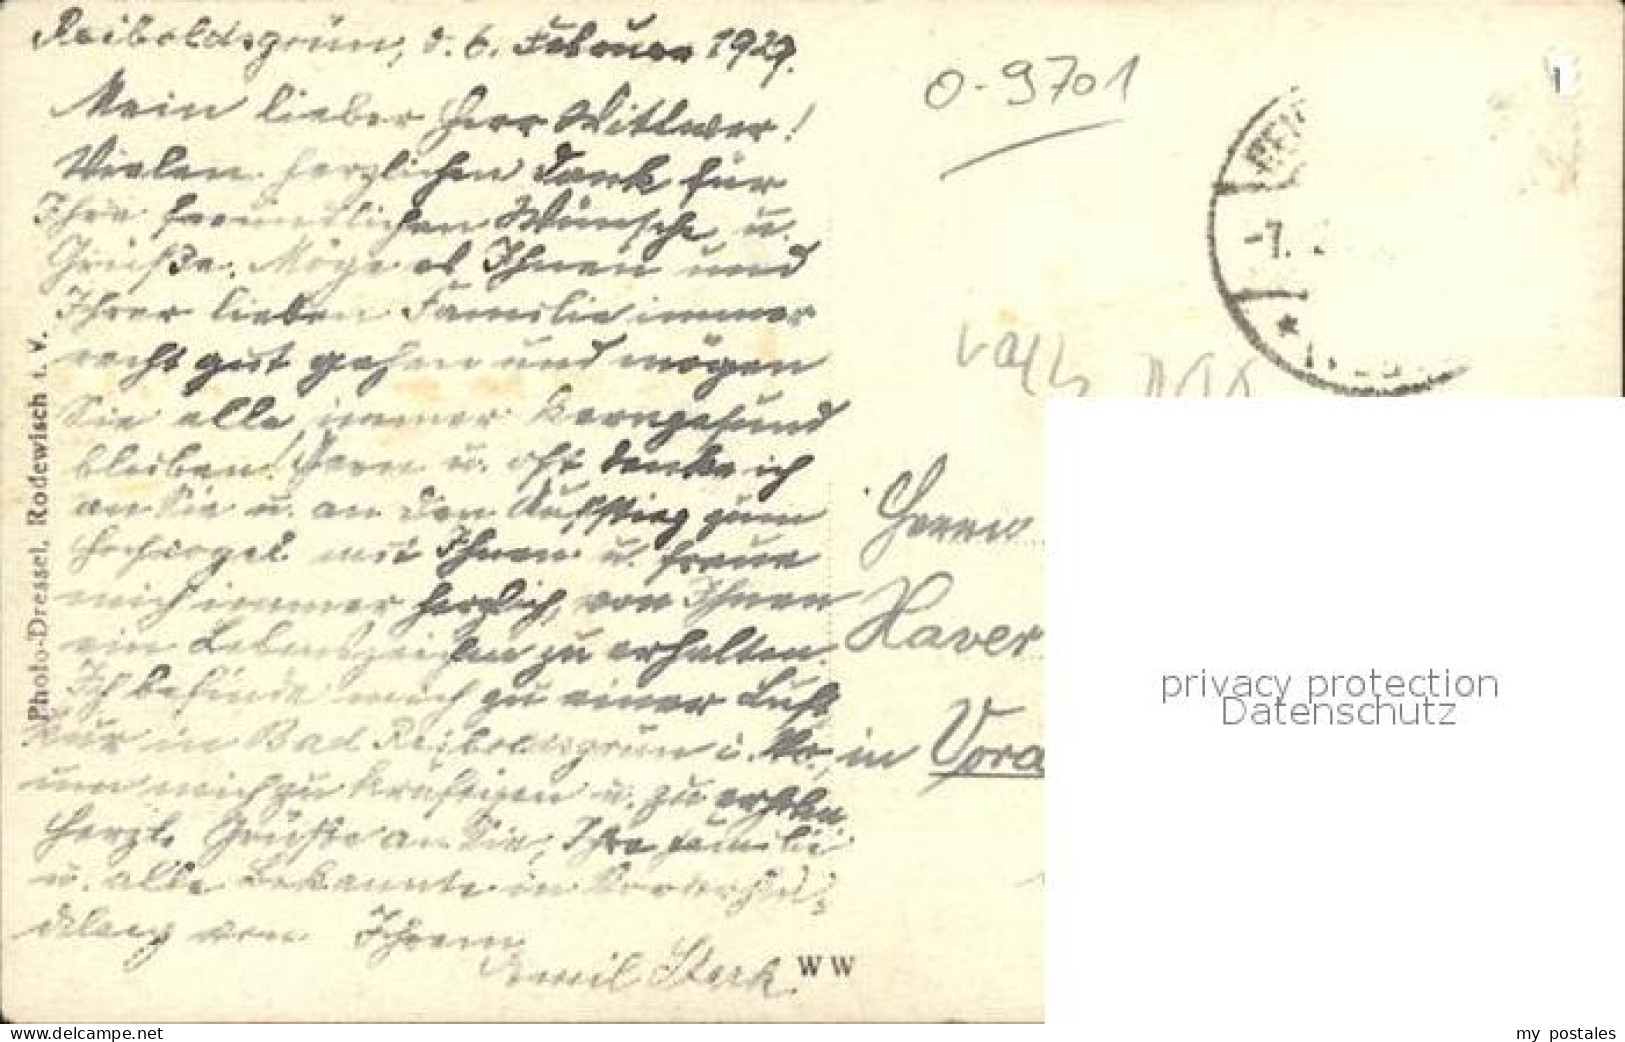 Reiboldsgrün, d. 6. Februar 1929.
Mein lieber Herr Wittwer!
Vielen herzlichen Dank für
Ihre freundlichen Wünsche u.
Grüße. Möge es Ihnen und
Ihrer lieben Familie immer
recht gut gehen und mögen
Sie alle immer kerngesund
bleiben! Gern u. oft denke ich
an Sie u. an den Aufstieg zum
Hochvogel mit Ihnen u. freue
mich immer herzlich, von Ihnen
ein Lebenszeichen zu erhalten.
Ich befinde mich zu einer Luft
Kur in Bad Reiboldsgrün i. V.,
um mich zu kräftigen u. zu erholen
Herzl. Grüße an Sie, Ihre Familie
u. alle Bekannte in Vorderhin-
delang von Ihrem
Emil Sterk.
WW
Photo-Dressel, Rodewisch i. V.
0-9701
-7. 2
Herrn
Xaver
in Vora
privacy protection
Datenschutz
my postales
www.delcampe.net